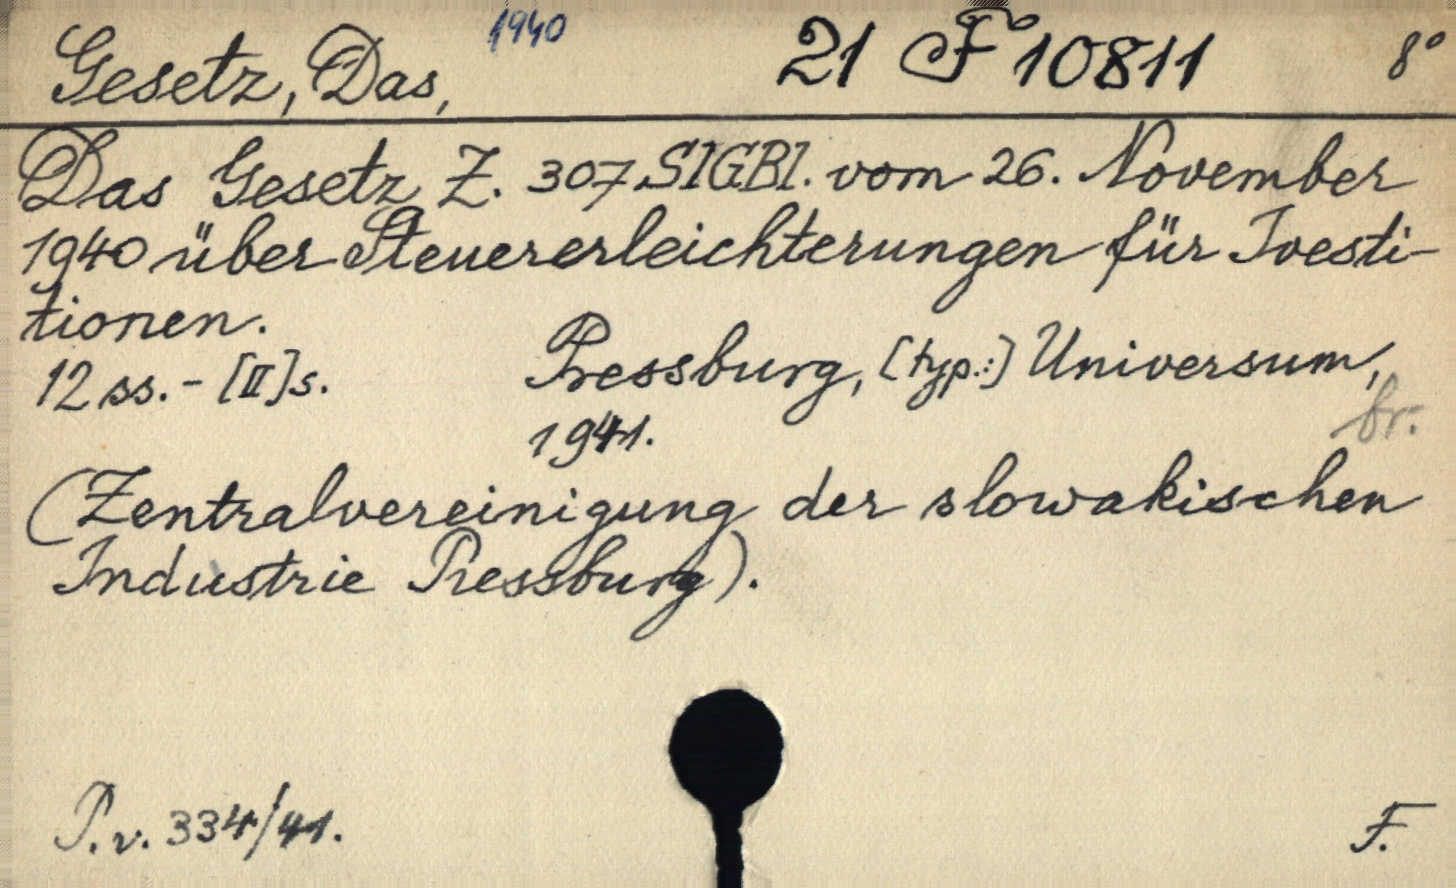 Gesetz, Das, 1940 21 F 10811 8°
Das Gesetz Z. 307 SlGBl. vom 26. November
1940 über Steuererleichterungen für Ivesti-
tionen.
12 ss. - [II] s. Pressburg, [typ.:] Universum,
1941. br.
(Zentralvereinigung der slowakischen
Industrie Pressburg).
P. v. 334/41. F.